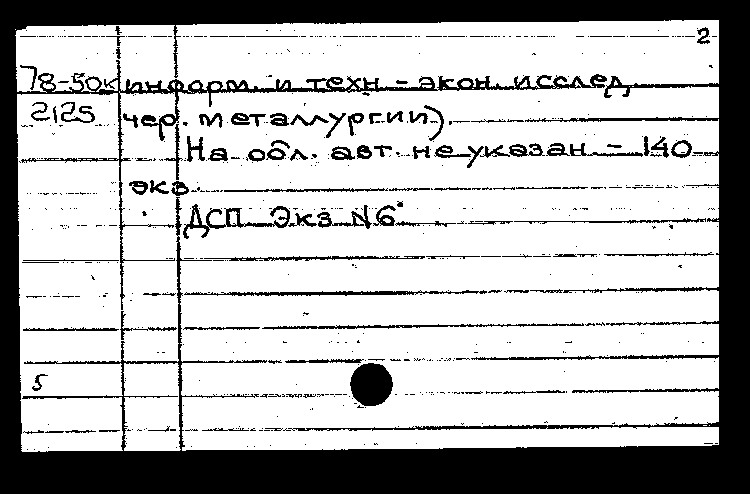 2
78-50к информ. и техн-экон. исслед.
2125 чер. металлургии).
На обл. авт. не указан - 140
экз.
ДСП Экз N6
5